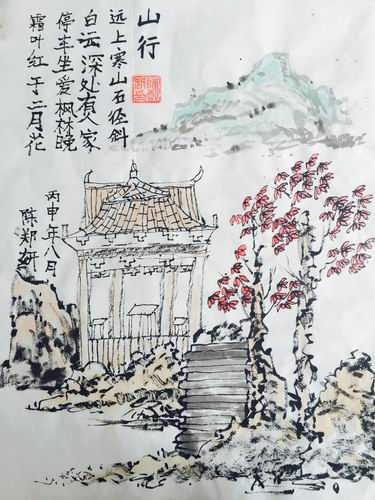 山行
远上寒山石径斜
白云深处有人家
停车坐爱枫林晚
霜叶红于二月花
丙申年八月
陈郑妍